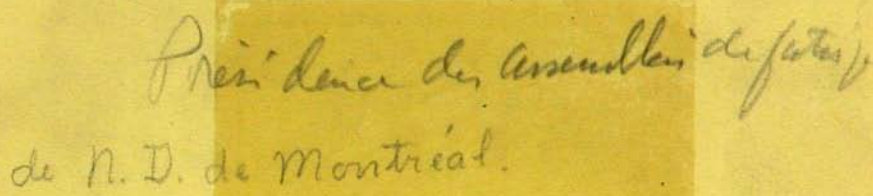 Présidence des assemblées de
de N. D. de Montréal.